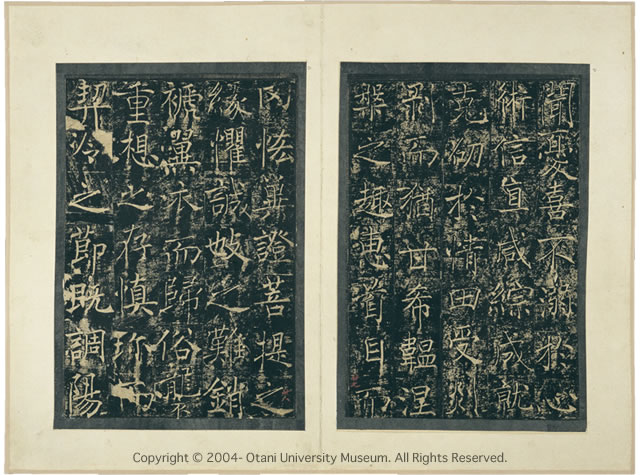 聞憂喜不溺於心
術信宜咸綜咸就
於情田受
而猶甘希韞涅
槃之趣惠質自而
證菩提之
緣懼誠妙之難銷
而歸俗襲
重想之存慎珎而
契冷之節既調陽
Copyright © 2004- Otani University Museum. All Rights Reserved.